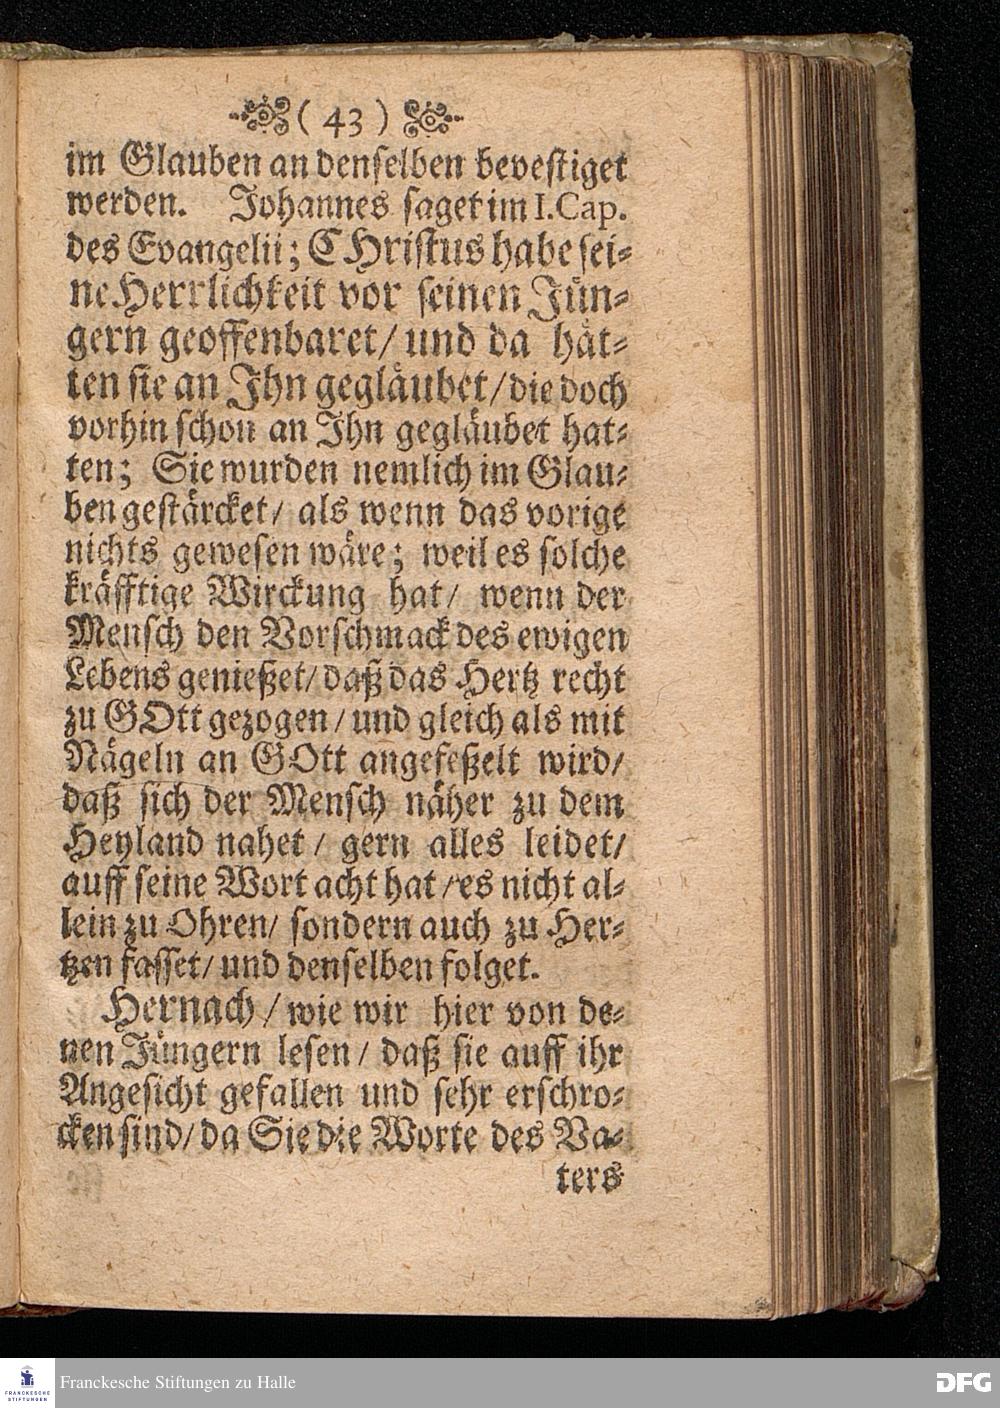 ( 43 )
im Glauben an denselben bevestiget
werden. Johannes saget im I. Cap.
des Evangelii; CHristus habe sei-
ne Herrlichkeit vor seinen Jün-
gern geoffenbaret/ und da hät-
ten sie an Jhn gegläubet/ die doch
vorhin schon an Jhn gegläubet hat-
ten; Sie wurden nemlich im Glau-
ben gestärcket/ als wenn das vorige
nichts gewesen wäre; weil es solche
kräfftige Wirckung hat/ wenn der
Mensch den Vorschmack des ewigen
Lebens genießet/ daß das Hertz recht
zu GOtt gezogen/ und gleich als mit
Nägeln an GOtt angefeßelt wird/
daß sich der Mensch näher zu dem
Heyland nahet/ gern alles leidet/
auff seine Wort acht hat/ es nicht al-
lein zu Ohren/ sondern auch zu Her-
tzen fasset/ und denselben folget.
Hernach/ wie wir hier von de-
nen Jüngern lesen/ daß sie auff ihr
Angesicht gefallen und sehr erschro-
cken sind/ da Sie die Worte des Va-
ters
FRANCKESCHE
STIFTUNGEN
Franckesche Stiftungen zu Halle
DFG